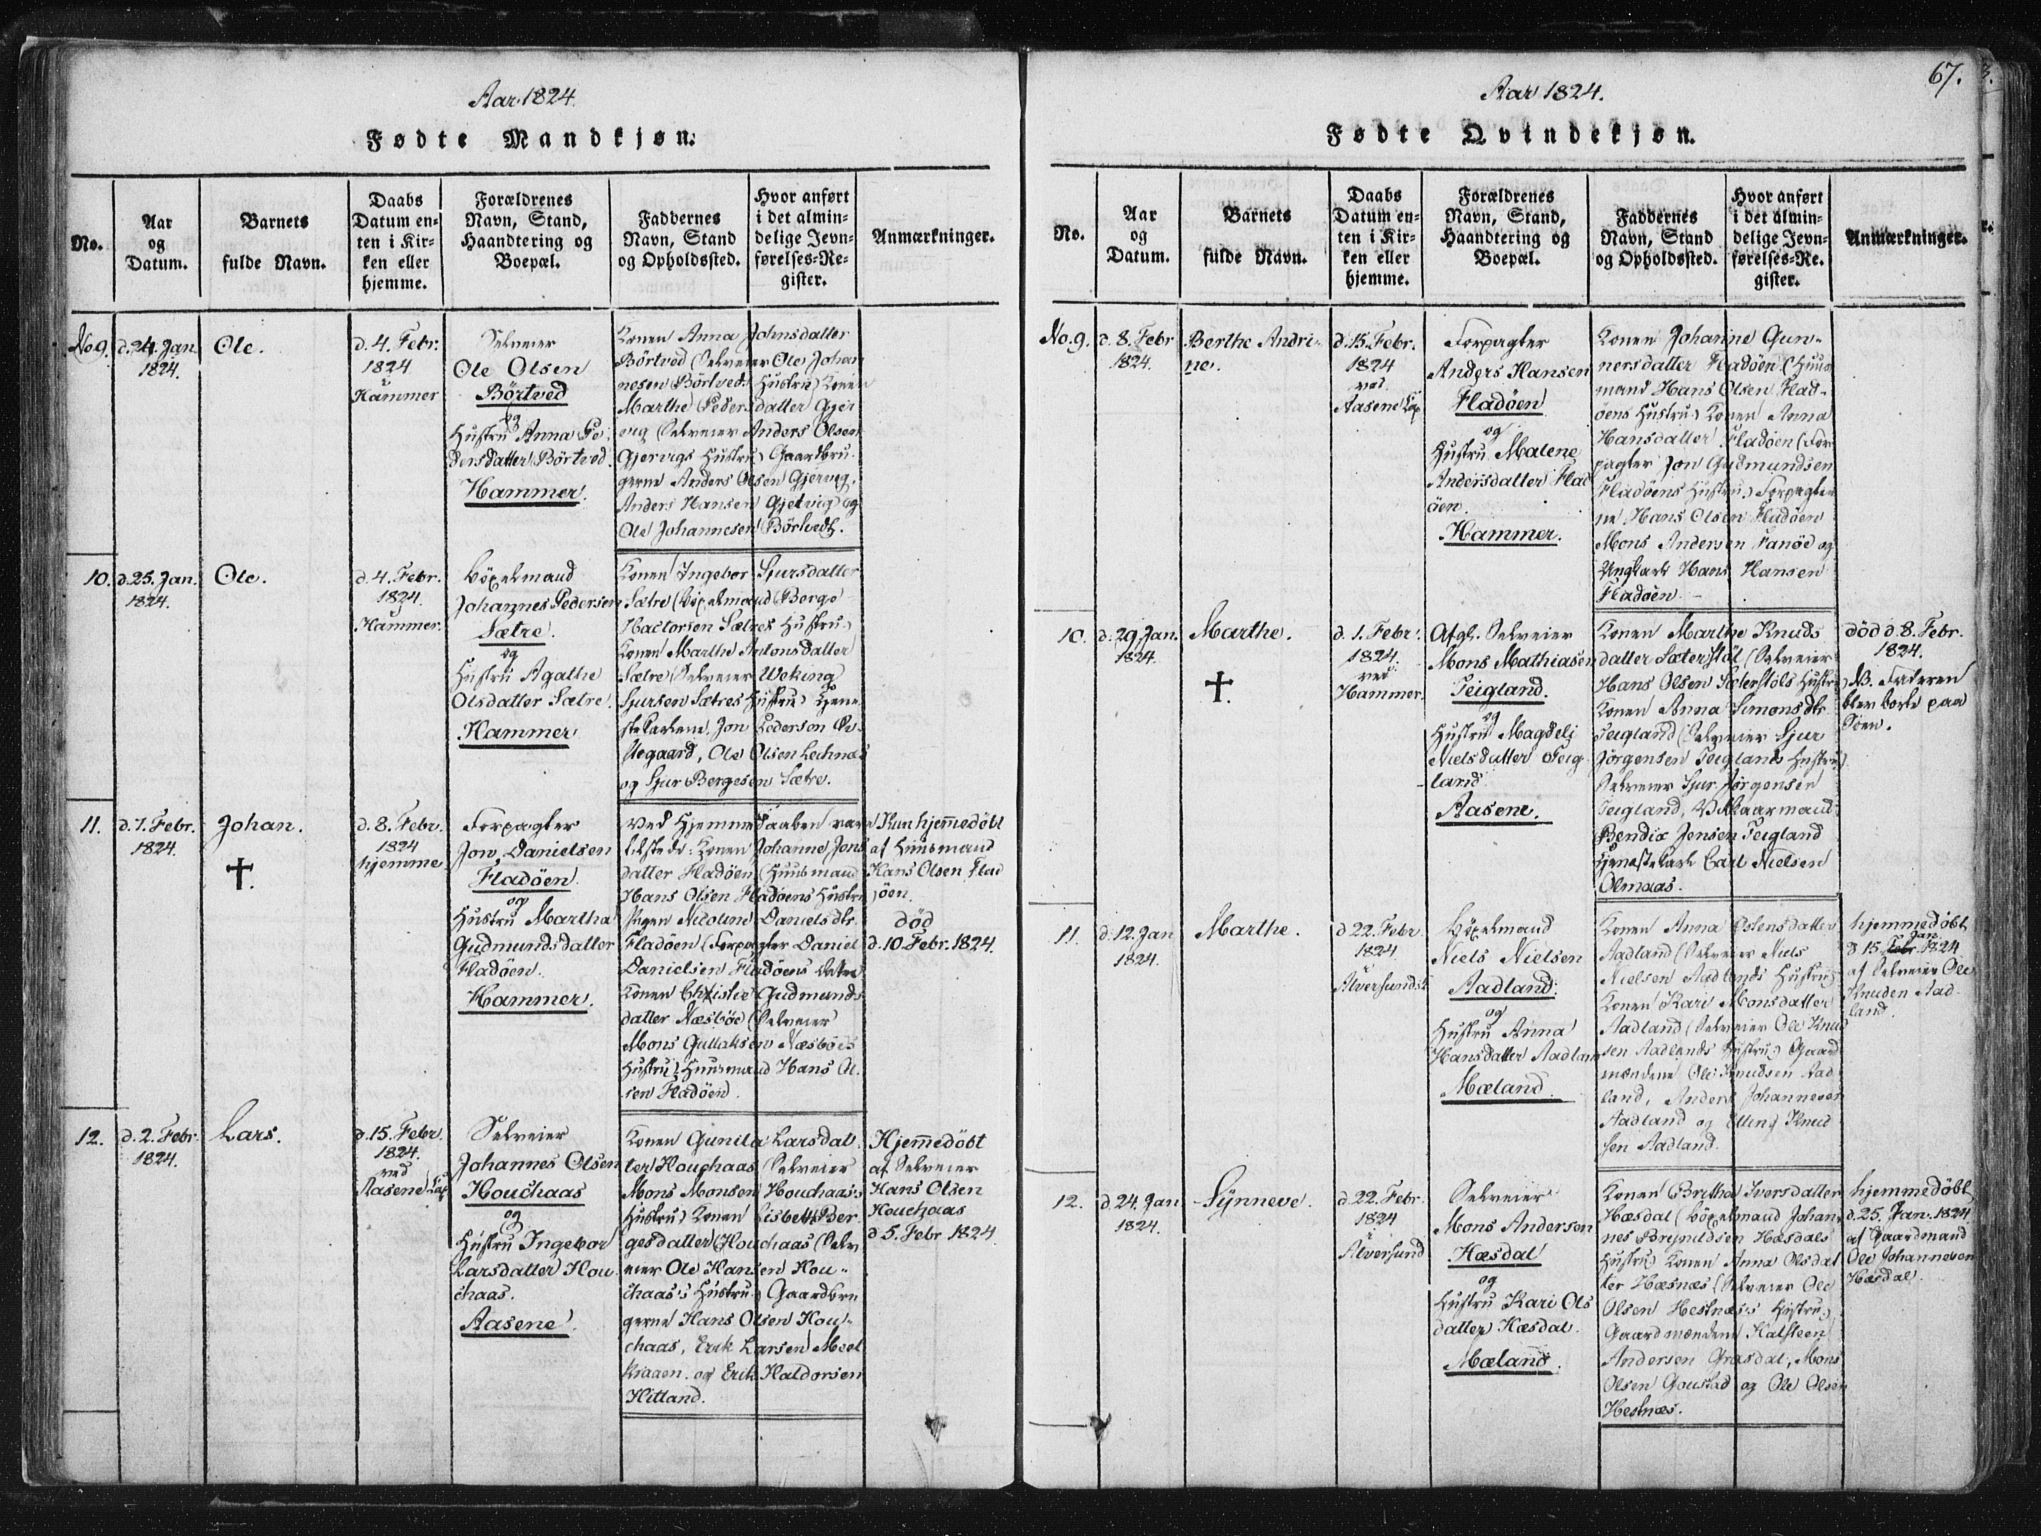 Aar 1824.
Fødte Mandkjøn.
No.
Aar
og
Datum.
Barnets
fulde Navn.
Daabs
Datum en-
ten i Kir-
ken eller
hjemme.
Forældrenes
Navn, Stand,
Haandtering og
Boepæl.
Faddernes
Navn, Stand
og Opholdssted.
Hvor anført
i det almin-
delige Jevn-
førelses-Re-
gister.
Anmærkninger.
No 9.
d. 24. Jan.
1824.
Ole.
d. 4. Febr.
1824
i
Hammer
Selveier
Ole Olsen
Börtved
og
Hustru Anna Pe-
dersdatter Börtved.
Hammer.
Konen Anna Johnsdatter
Börtved (Selveier Ole Johan
nesen Börtveds Hustru) Konen
Marthe Pedersdatter Gjer
vig (Selveier Anders Olsen
Gjervigs Hustru) Gaardbru-
gerne Anders Olsen Gjervig,
Anders Hansen Gjervig og
Ole Johannesen Börtvedt.
10.
d. 25. Jan.
1824.
Ole.
d. 4. Febr.
1824.
i
Hammer.
Böxelmand
Johannes Pedersen
Sætre.
og
Hustru Agathe
Olsdatter Sætre.
Hammer
Konen Ingebor Sjursdatter
Sætre (Böxelmand Berge
Hactorsen Sætres Hustru)
Konen Marthe Antonsdatter
Sætre (Selveier Weking
Sjursen Sætres Hustru) Tjene
stekarlene, Jon Pedersen
Ole Olsen
og Sjur Bergesen Sætre.
11.
d. 7. Febr.
1824.
Johan.
✝.
d. 8. Febr.
1824
hjemme
Forpagter
Jon Danielsen
Fladöen.
og
Hustru Martha
Gudmundsdatter
Fladöen.
Hammer.
Ved Hjemme Daaben vare
tilstede: Konen Johanne Jons
datter Fladöen (Huusmand
Hans Olsen Fladöens Hustru
Pigen Nicoline Daniels dtr.
Fladöen (Forpagter Daniel
Danielsen Fladöens Datter
Konen Christie Gudmunds
datter Næsböe (Selveier
Mons Gullaksen Næsböes
Hustru) Huusmand Hans Ol
sen Fladöen.
Kun hjemedöbt
af Huusmand
Hans Olsen Flad
öen.
död
d. 10. Febr. 1824.
12.
d. 2. Febr.
1824.
Lars.
d. 15. Febr.
1824.
ved
Aasene Cap
Selveier
Johannes Olsen
Houchaas
og
Hustru Ingebor
Larsdatter Hou
chaas.
Aasene.
Konen Gunila Larsdat
ter Houchaas (Selveier
Mons Monsen Houchaas's
Hustru) Konen Lisbeth Ber
gesdatter (Houchaas (Selv
eier Ole Hansen Hou-
chaas's Hustru) Gaardbru
gerne Hans Olsen Hou-
chaas, Erik Larsen Meel
kraaen. og Erik Haldorsen
Hitland.
Hjemedöbt
af Selveier
Hans Olsen
Houchaas
d. 5. Febr. 1824.
67.
Aar 1824.
Fødte Qvindekjøn.
No.
Aar
og
Datum.
Barnets
fulde Navn.
Daabs
Datum en-
ten i Kir-
ken eller
hjemme.
Forældrenes
Navn, Stand,
Haandtering og
Boepæl.
Faddernes
Navn, Stand
og Opholdssted.
Hvor anført
i det almin-
delige Jevn-
førelses-Re-
gister.
Anmærkninger.
No. 9.
d. 8. Febr
1824.
Berthe Andri-
ne.
d. 15. Febr.
1824
ved
Aasene Cap
Forpagter
Anders Hansen
Fladöen
og
Hustru Malene
Andersdatter Flad
öen.
Hammer.
Konen Johanne Gun-
nersdatter Fladöen (Huus
mand Hans Olsen Flad-
öens Hustru) Konen Anna
Hansdatter Fladöen (For
pagter Jon Gudmundsen
Fladöens Hustru) Forpagter
ne Hans Olsen Fladöen
Mons Andersen Fanöe og
Ungkarl Hans Hansen
Fladöen.
10.
d. 29. Jan.
1824.
Marthe.
✝.
d. 1. Febr.
1824.
ved
Hammer.
Afgl. Selveier
Mons Mathiasen
Teigland.
og
Hustru Magdeli
Nielsdatter Teig
land.
Aasene.
Konen Marthe Knuds
datter Sæterstöl (Selveier
Hans Olsen Sæterstöls Hustru)
Konen Anna Simons dtr.
Teigland (Selveier Sjur
Jörgensen Teiglands Hustru)
Selveier Sjur Jörgensen
Teigland,
Bendix Jensen Teigland
Tjenestekarl Carl Nielsen
Olmaas.
död d. 8. Febr.
1824.
NB. Faderen
blev borte paa
Söen.
11.
d. 12. Jan
1824.
Marthe.
d. 22. Febr
1824
i
Alversund.
Böxelmand
Niels Nielsen
Aadland.
og
Hustru Anna
Hansdatter Aadland
Mæland.
Konen Anna Östensdatter
Aadland (Selveier Niels
Nielsen Aadlands Hustru)
Konen Kari Monsdatter
Aadland (Selveier Ole Knud
sen Aadlands Hustru) Gaard
mændene Ole Knudsen Aad
land, Anders Johannesen
Aadland og Elling Knud
sen Aadland.
hjemmedöbt
d 15. Febr. Jan. 1824
af Selveier Ole
Knudsen Aad-
land.
12.
d. 24. Jan
1824.
Synneve.
d. 22. Febr
1824
i
Alversund
Selveier
Mons Andersen
Hæsdal
og
Hustru Kari Ols
datter Hæsdal.
Mæland.
Konen Britha Iversdatter
Hæsdal (Böxelmand Johan
nes Brynildsen Hæsdals
Hustru) Konen Anna Olsdat
ter Hæsnæs (Selveier Ole
Olsen Hestnæs's Hustru)
Gaardmændene Halsteen
Andersen Græsdal, Mons
Olsen Goustad og Ole Olsen
Hestnæs.
hjemmedöbt
d. 25. Jan. 1824
af Gaardmand
Ole Johannesen
Hæsdal.